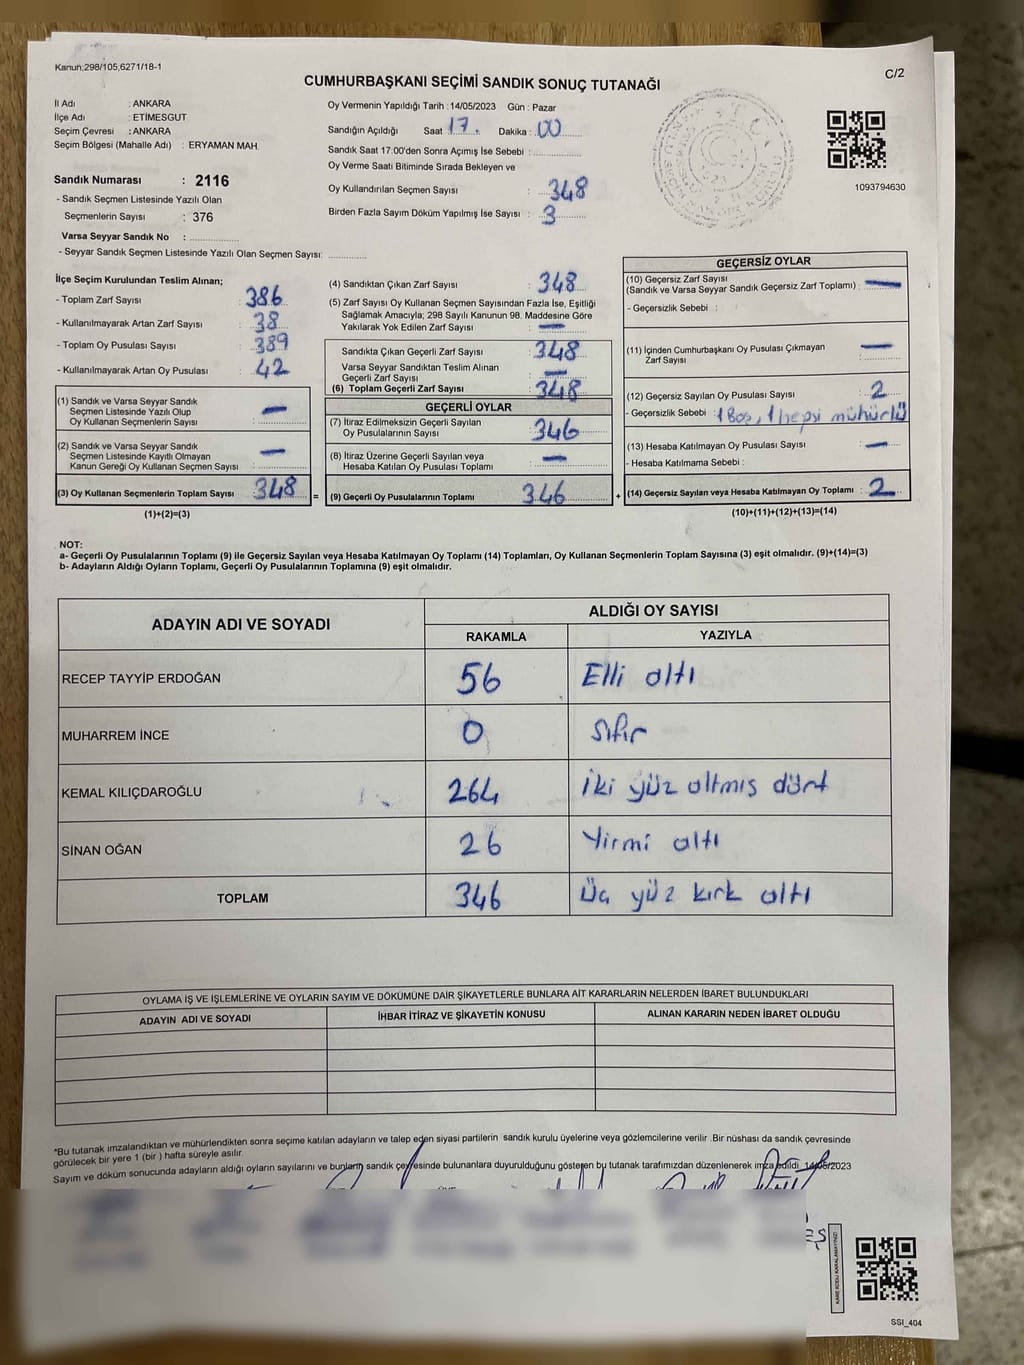 Kanun;298/105,6271/18-1
C/2
CUMHURBAŞKANI SEÇİMİ SANDIK SONUÇ TUTANAĞI
İl Adı : ANKARA
İlçe Adı : ETİMESGUT
Seçim Çevresi : ANKARA
Seçim Bölgesi (Mahalle Adı) : ERYAMAN MAH.
Sandık Numarası : 2116
- Sandık Seçmen Listesinde Yazılı Olan
Seçmenlerin Sayısı : 376
Varsa Seyyar Sandık No :
- Seyyar Sandık Seçmen Listesinde Yazılı Olan Seçmen Sayısı:
Oy Vermenin Yapıldığı Tarih : 14/05/2023 Gün : Pazar
Sandığın Açıldığı Saat 17. Dakika : 00
Sandık Saat 17:00'den Sonra Açımış İse Sebebi :
Oy Verme Saati Bitiminde Sırada Bekleyen ve
Oy Kullandırılan Seçmen Sayısı : 348
Birden Fazla Sayım Döküm Yapılmış İse Sayısı : 3
1093794630
İlçe Seçim Kurulundan Teslim Alınan;
- Toplam Zarf Sayısı : 386
- Kullanılmayarak Artan Zarf Sayısı : 38
- Toplam Oy Pusulası Sayısı : 389
- Kullanılmayarak Artan Oy Pusulası : 42
(1) Sandık ve Varsa Seyyar Sandık
Seçmen Listesinde Yazılı Olup
Oy Kullanan Seçmenlerin Sayısı : —
(2) Sandık ve Varsa Seyyar Sandık
Seçmen Listesinde Kayıtlı Olmayan
Kanun Gereği Oy Kullanan Seçmen Sayısı : —
(3) Oy Kullanan Seçmenlerin Toplam Sayısı : 348 =
(1)+(2)=(3)
(4) Sandıktan Çıkan Zarf Sayısı : 348
(5) Zarf Sayısı Oy Kullanan Seçmen Sayısından Fazla İse, Eşitliği
Sağlamak Amacıyla; 298 Sayılı Kanunun 98. Maddesine Göre
Yakılarak Yok Edilen Zarf Sayısı : —
Sandıkta Çıkan Geçerli Zarf Sayısı : 348
Varsa Seyyar Sandıktan Teslim Alınan
Geçerli Zarf Sayısı : —
(6) Toplam Geçerli Zarf Sayısı : 348
GEÇERLİ OYLAR
(7) İtiraz Edilmeksizin Geçerli Sayılan
Oy Pusulalarının Sayısı : 346
(8) İtiraz Üzerine Geçerli Sayılan veya
Hesaba Katılan Oy Pusulası Toplamı : —
(9) Geçerli Oy Pusulalarının Toplamı : 346 +
GEÇERSİZ OYLAR
(10) Geçersiz Zarf Sayısı
(Sandık ve Varsa Seyyar Sandık Geçersiz Zarf Toplamı) : —
- Geçersizlik Sebebi :
(11) İçinden Cumhurbaşkanı Oy Pusulası Çıkmayan
Zarf Sayısı : —
(12) Geçersiz Sayılan Oy Pusulası Sayısı : 2
- Geçersizlik Sebebi : 1 Boş, 1 hepsi mühürlü
(13) Hesaba Katılmayan Oy Pusulası Sayısı : —
- Hesaba Katılmama Sebebi :
(14) Geçersiz Sayılan veya Hesaba Katılmayan Oy Toplamı : 2
(10)+(11)+(12)+(13)=(14)
NOT:
a- Geçerli Oy Pusulalarının Toplamı (9) ile Geçersiz Sayılan veya Hesaba Katılmayan Oy Toplamı (14) Toplamları, Oy Kullanan Seçmenlerin Toplam Sayısına (3) eşit olmalıdır. (9)+(14)=(3)
b- Adayların Aldığı Oyların Toplamı, Geçerli Oy Pusulalarının Toplamına (9) eşit olmalıdır.
ADAYIN ADI VE SOYADI
ALDIĞI OY SAYISI
RAKAMLA YAZIYLA
RECEP TAYYİP ERDOĞAN 56 Elli altı
MUHARREM İNCE 0 Sıfır
KEMAL KILIÇDAROĞLU 264 İki yüz altmış dört
SİNAN OĞAN 26 Yirmi altı
TOPLAM 346 Üç yüz kırk altı
OYLAMA İŞ VE İŞLEMLERİNE VE OYLARIN SAYIM VE DÖKÜMÜNE DAİR ŞİKAYETLERLE BUNLARA AİT KARARLARIN NELERDEN İBARET BULUNDUKLARI
ADAYIN ADI VE SOYADI İHBAR İTİRAZ VE ŞİKAYETİN KONUSU ALINAN KARARIN NEDEN İBARET OLDUĞU
*Bu tutanak imzalandıktan ve mühürlendikten sonra seçime katılan adayların ve talep eden siyasi partilerin sandık kurulu üyelerine veya gözlemcilerine verilir .Bir nüshası da sandık çevresinde
görülecek bir yere 1 (bir ) hafta süreyle asılır.
Sayım ve döküm sonucunda adayların aldığı oyların sayılarını ve bunların sandık çevresinde bulunanlara duyurulduğunu gösteren bu tutanak tarafımızdan düzenlenerek imza edildi. 14/05/2023
KARE KODU KARALAMAYINIZ!
SSI_404